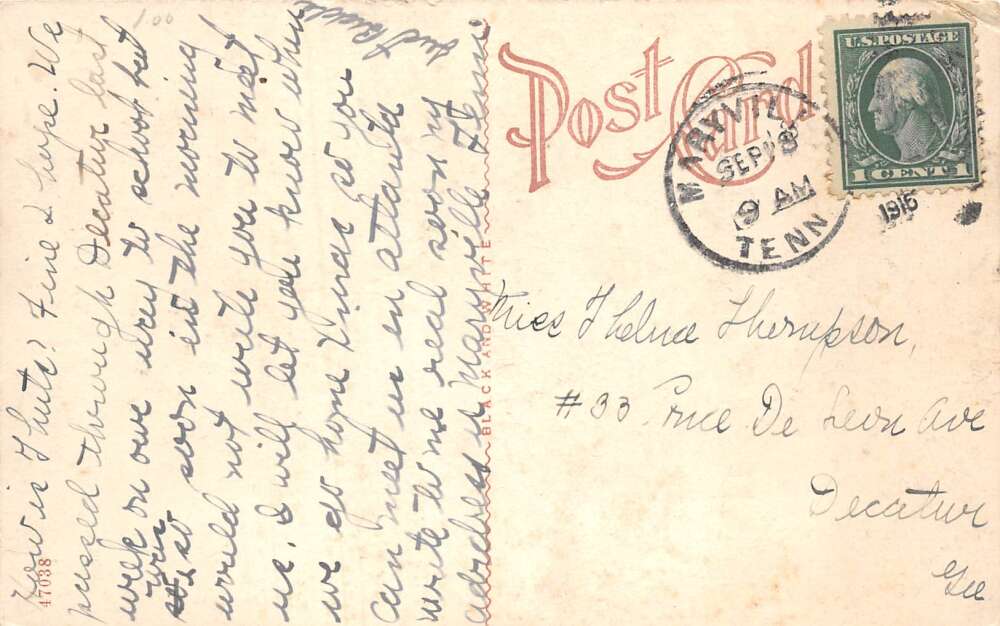 How is Thuts? Fine I hope. We
passed through Decatur last
week on our way to school but
was so soon in the morning
would not write you to meet
us. I will let you know when
we go home Xmas so you
can meet us in atlanta
write to me real soon my
address is Maryville Tenn
Just
1.00
47038
BLACK AND WHITE
Post Card
MARYVILLE
SEP 18
9 AM
1916
TENN
U.S. POSTAGE
1 CENT 1
Miss Thelma Thompson,
#33 Ponce De Leon Ave
Decatur
Ga